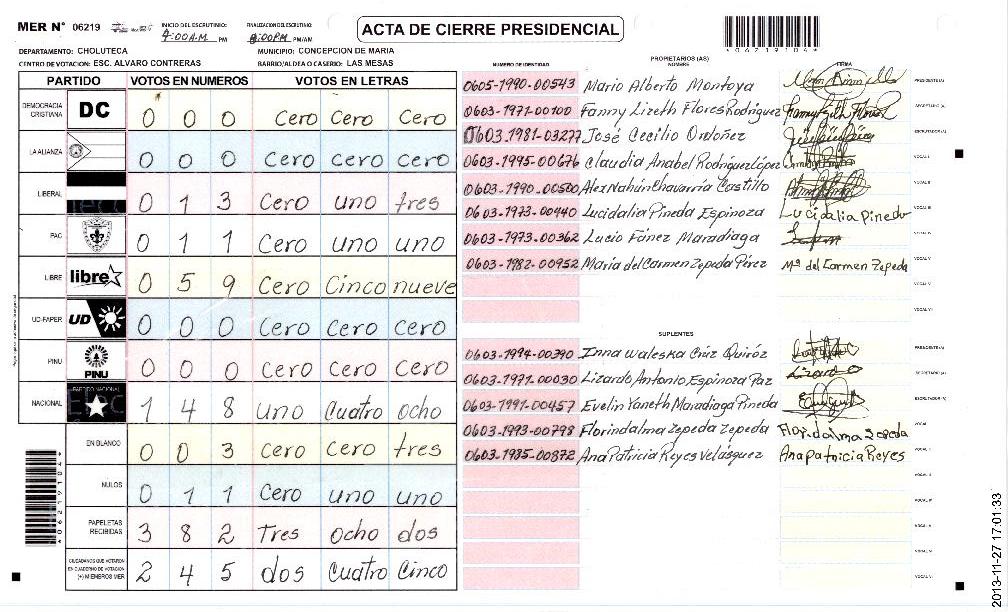 MER N° 06219
INICIO DEL ESCRUTINIO:
4:00 A.M. PM
FINALIZACION DEL ESCRUTINIO:
8:00PM PM/AM
ACTA DE CIERRE PRESIDENCIAL
*06219104*
DEPARTAMENTO: CHOLUTECA
MUNICIPIO: CONCEPCION DE MARIA
CENTRO DE VOTACION: ESC. ALVARO CONTRERAS
BARRIO/ALDEA O CASERIO: LAS MESAS
PARTIDO VOTOS EN NUMEROS VOTOS EN LETRAS
DEMOCRACIA CRISTIANA DC 0 0 0 Cero Cero Cero
LA ALIANZA 0 0 0 Cero cero cero
LIBERAL 0 1 3 Cero uno tres
PAC 0 1 1 Cero uno uno
LIBRE libre 0 5 9 Cero Cinco nueve
UD-FAPER UD 0 0 0 Cero Cero Cero
PINU PINU 0 0 0 Cero Cero Cero
NACIONAL PARTIDO NACIONAL 1 4 8 uno Cuatro ocho
EN BLANCO 0 0 3 Cero Cero tres
NULOS 0 1 1 Cero uno uno
PAPELETAS RECIBIDAS 3 8 2 Tres ocho dos
CIUDADANOS QUE VOTARON EN CUADERNO DE VOTACION (+) MIEMBROS MER 2 4 5 dos Cuatro Cinco
*06219104*
NUMERO DE IDENTIDAD
PROPIETARIOS (AS)
NOMBRE
FIRMA
0605-1990-00543 Mario Alberto Montoya PRESIDENTE (A)
0603-1971-00100 Fanny Lizeth Flores Rodriguez SECRETARIO (A)
0603-1981-03277 José Cecilio Ordoñez ESCRUTADOR (A)
0603-1995-00676 Claudia Anabel Rodríguez López VOCAL I
0603-1990-00500 Alex Nahún Chavarria Castillo VOCAL II
0603-1973-00440 Lucidalia Pineda Espinoza Lucidalia Pineda VOCAL III
0603-1973-00362 Lucio Fúnez Maradiaga
0603-1982-00952 María del Carmen Zepeda Pérez Mª del Carmen Zepeda VOCAL V
VOCAL VI
SUPLENTES
0603-1994-00390 Inna Waleska Cruz Quiróz PRESIDENTE (A)
0603-1971-00030 Lizardo Antonio Espinoza Paz Lizardo SECRETARIO (A)
0603-1991-00457 Evelin Yaneth Maradiaga Pineda ESCRUTADOR (A)
0603-1993-00798 Florindalma Zepeda Zepeda Floridalma Zepeda
0603-1985-00872 Ana Patricia Reyes Velásquez Ana patricia Reyes
2013-11-27 17:01:33